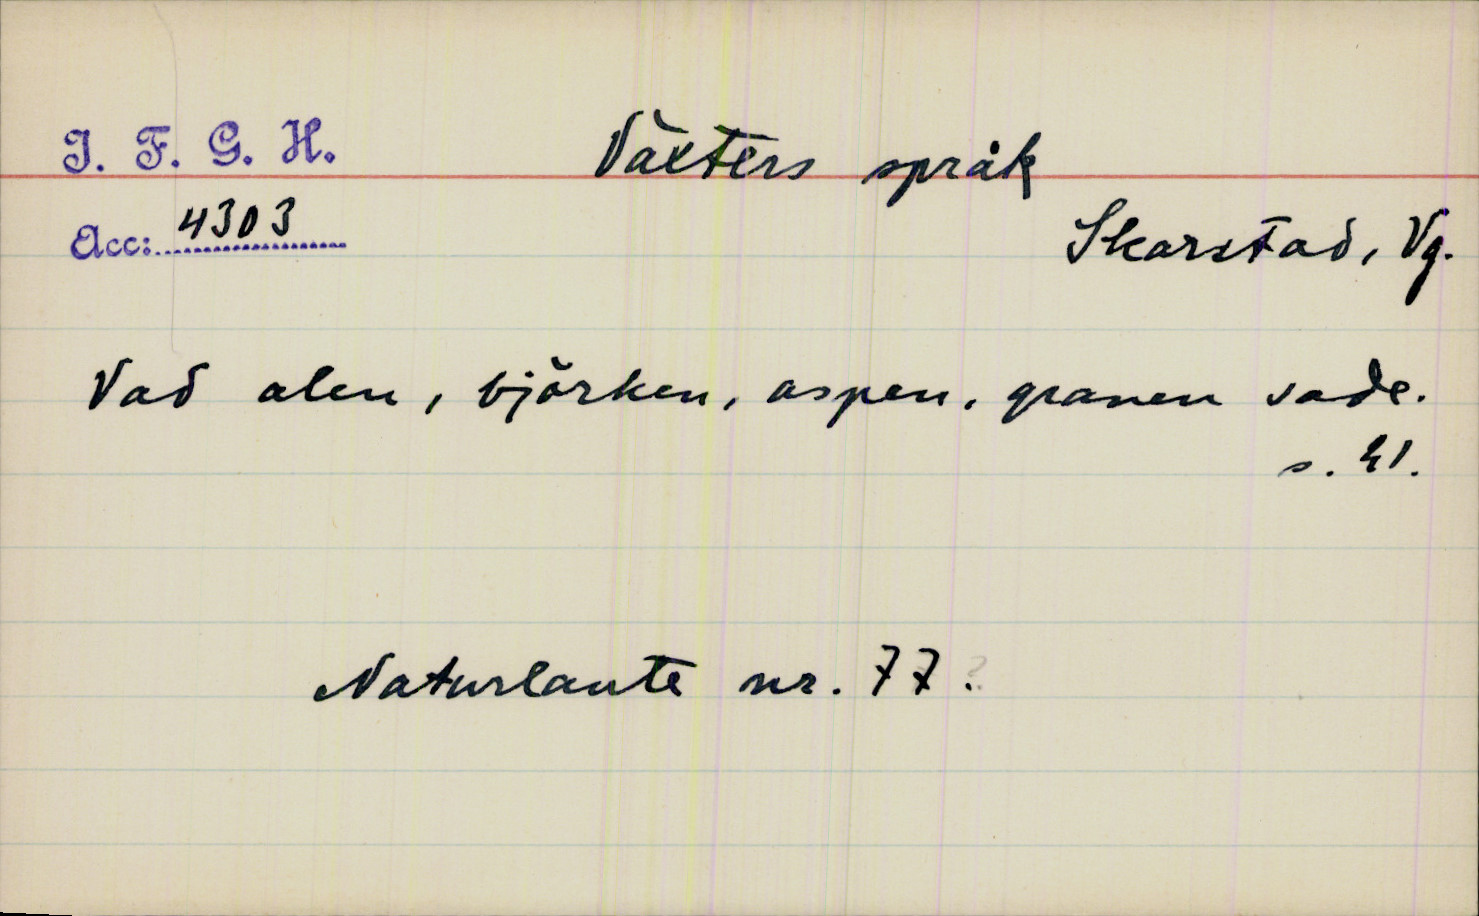 I. F. G. H.
Växters språk
Acc: 4303
Skarstad, Vg.
Vad alen, björken, aspen, granen sade.
s. 41.
Naturlaute nr. 77.